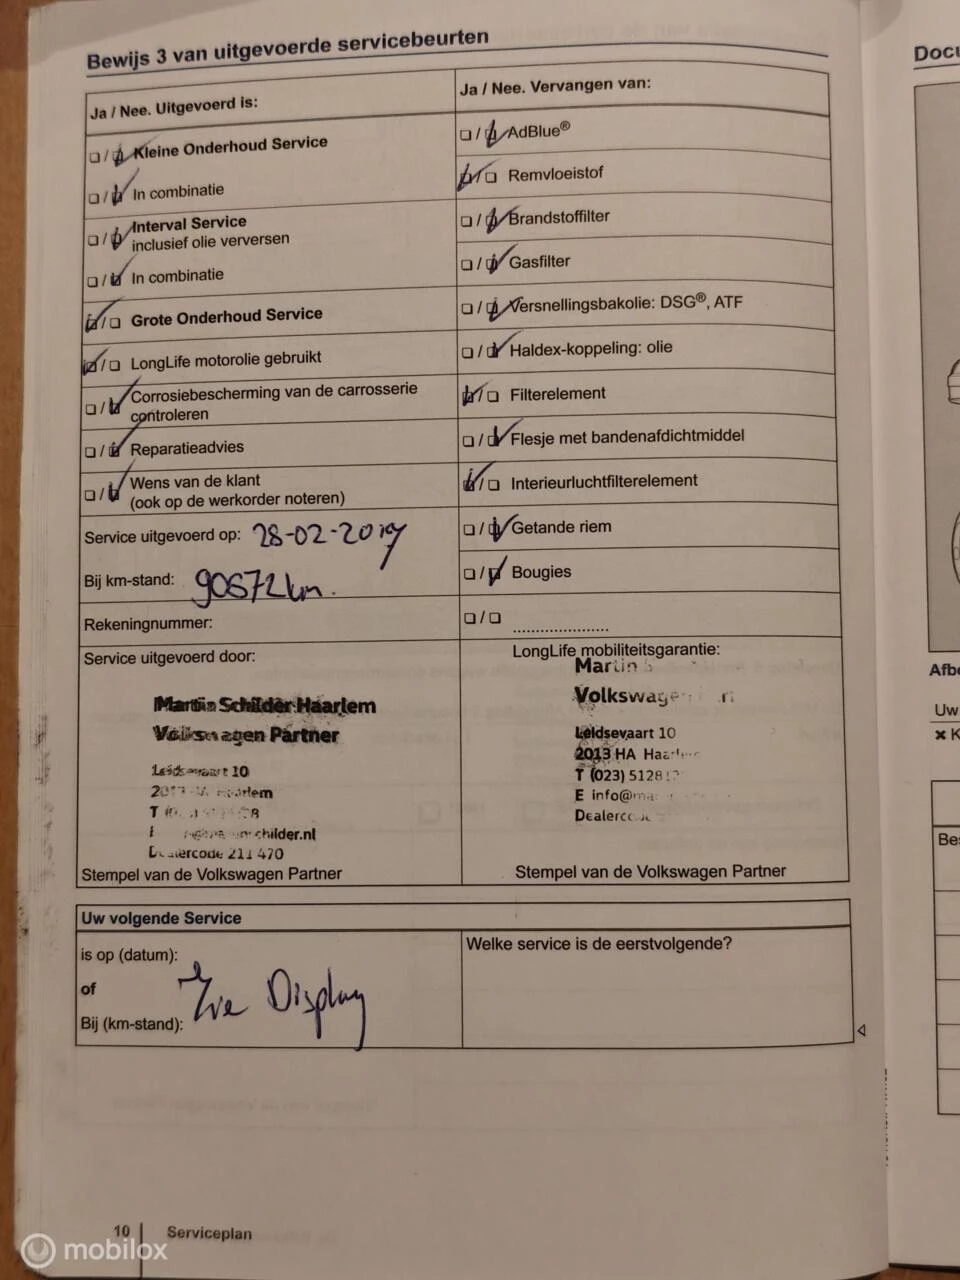 Bewijs 3 van uitgevoerde servicebeurten
Ja / Nee. Uitgevoerd is:
Kleine Onderhoud Service
In combinatie
Interval Service
inclusief olie verversen
In combinatie
Grote Onderhoud Service
LongLife motorolie gebruikt
Corrosiebescherming van de carrosserie
controleren
Reparatieadvies
Wens van de klant
(ook op de werkorder noteren)
Service uitgevoerd op: 28-02-2019
Bij km-stand: 90672 km.
Rekeningnummer:
Service uitgevoerd door:
Martin Schilder Haarlem
Volkswagen Partner
Leidsevaart 10
Haarlem
T
schilder.nl
Dealercode 211 470
Stempel van de Volkswagen Partner
Ja / Nee. Vervangen van:
AdBlue®
Remvloeistof
Brandstoffilter
Gasfilter
Versnellingsbakolie: DSG®, ATF
Haldex-koppeling: olie
Filterelement
Flesje met bandenafdichtmiddel
Interieurluchtfilterelement
Getande riem
Bougies
LongLife mobiliteitsgarantie:
Martin
Volkswagen
Leidsevaart 10
2013 HA Haarlem
T (023)
E info@
Dealercode
Stempel van de Volkswagen Partner
Uw volgende Service
is op (datum):
of
Bij (km-stand):
Zie Display
Welke service is de eerstvolgende?
10 Serviceplan
Uw
mobilox